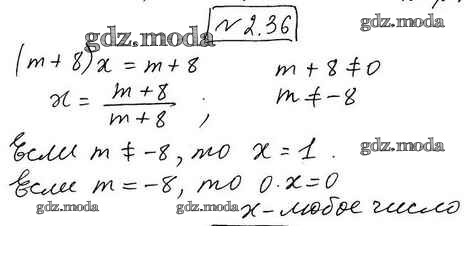 № 2.36
gdz.moda gdz.moda
(m+8)x = m+8 m+8 ≠ 0
x = (m+8)/(m+8) ; m ≠ -8
Если m ≠ -8, то x = 1. gdz.moda
Если m = -8, то 0·x = 0
gdz.moda gdz.moda gdz.moda
x - любое число